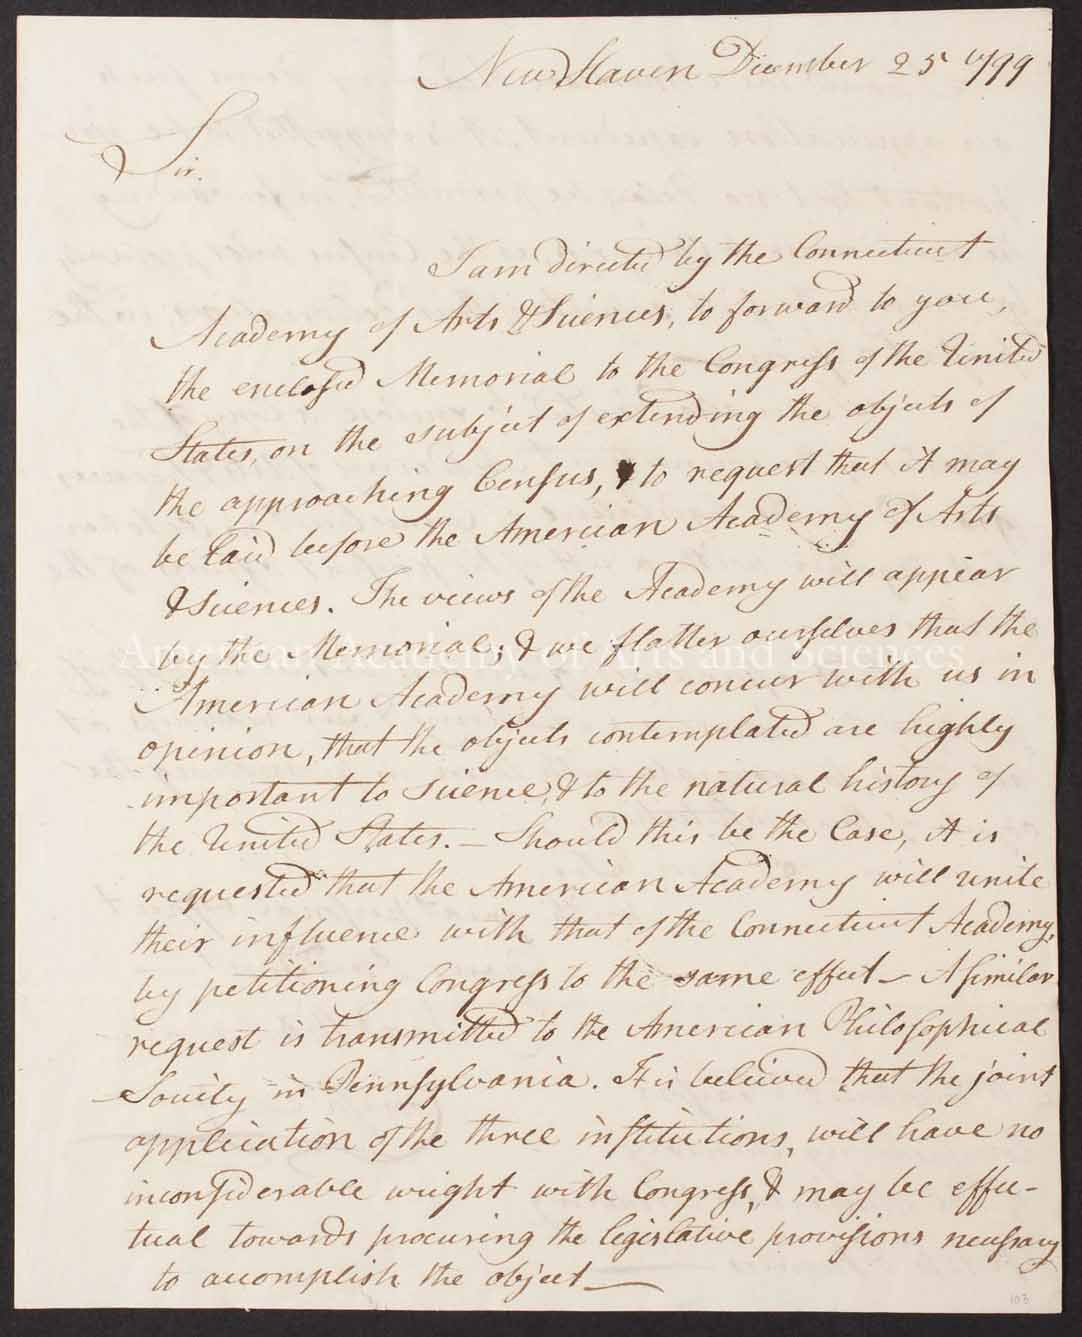 New Haven December 25 1799
Sir.
I am directed by the Connecticut
Academy of Arts & Sciences, to forward to you,
the enclosed Memorial to the Congress of the United
States, on the subject of extending the objects of
the approaching Census, & to request that it may
be laid before the American Academy of Arts
& Sciences. The views of the Academy will appear
by the Memorial; & we flatter ourselves that the
American Academy will concur with us in
opinion, that the objects contemplated are highly
important to science, & to the natural history of
the United States. — Should this be the Case, it is
requested that the American Academy will unite
their influence with that of the Connecticut Academy,
by petitioning Congress to the same effect — A similar
request is transmitted to the American Philosophical
Society in Pennsylvania. It is believed that the joint
application of the three institutions, will have no
inconsiderable weight with Congress, & may be effec-
tual towards procuring the legislative provisions necessary
to accomplish the object —
American Academy of Arts and Sciences
103